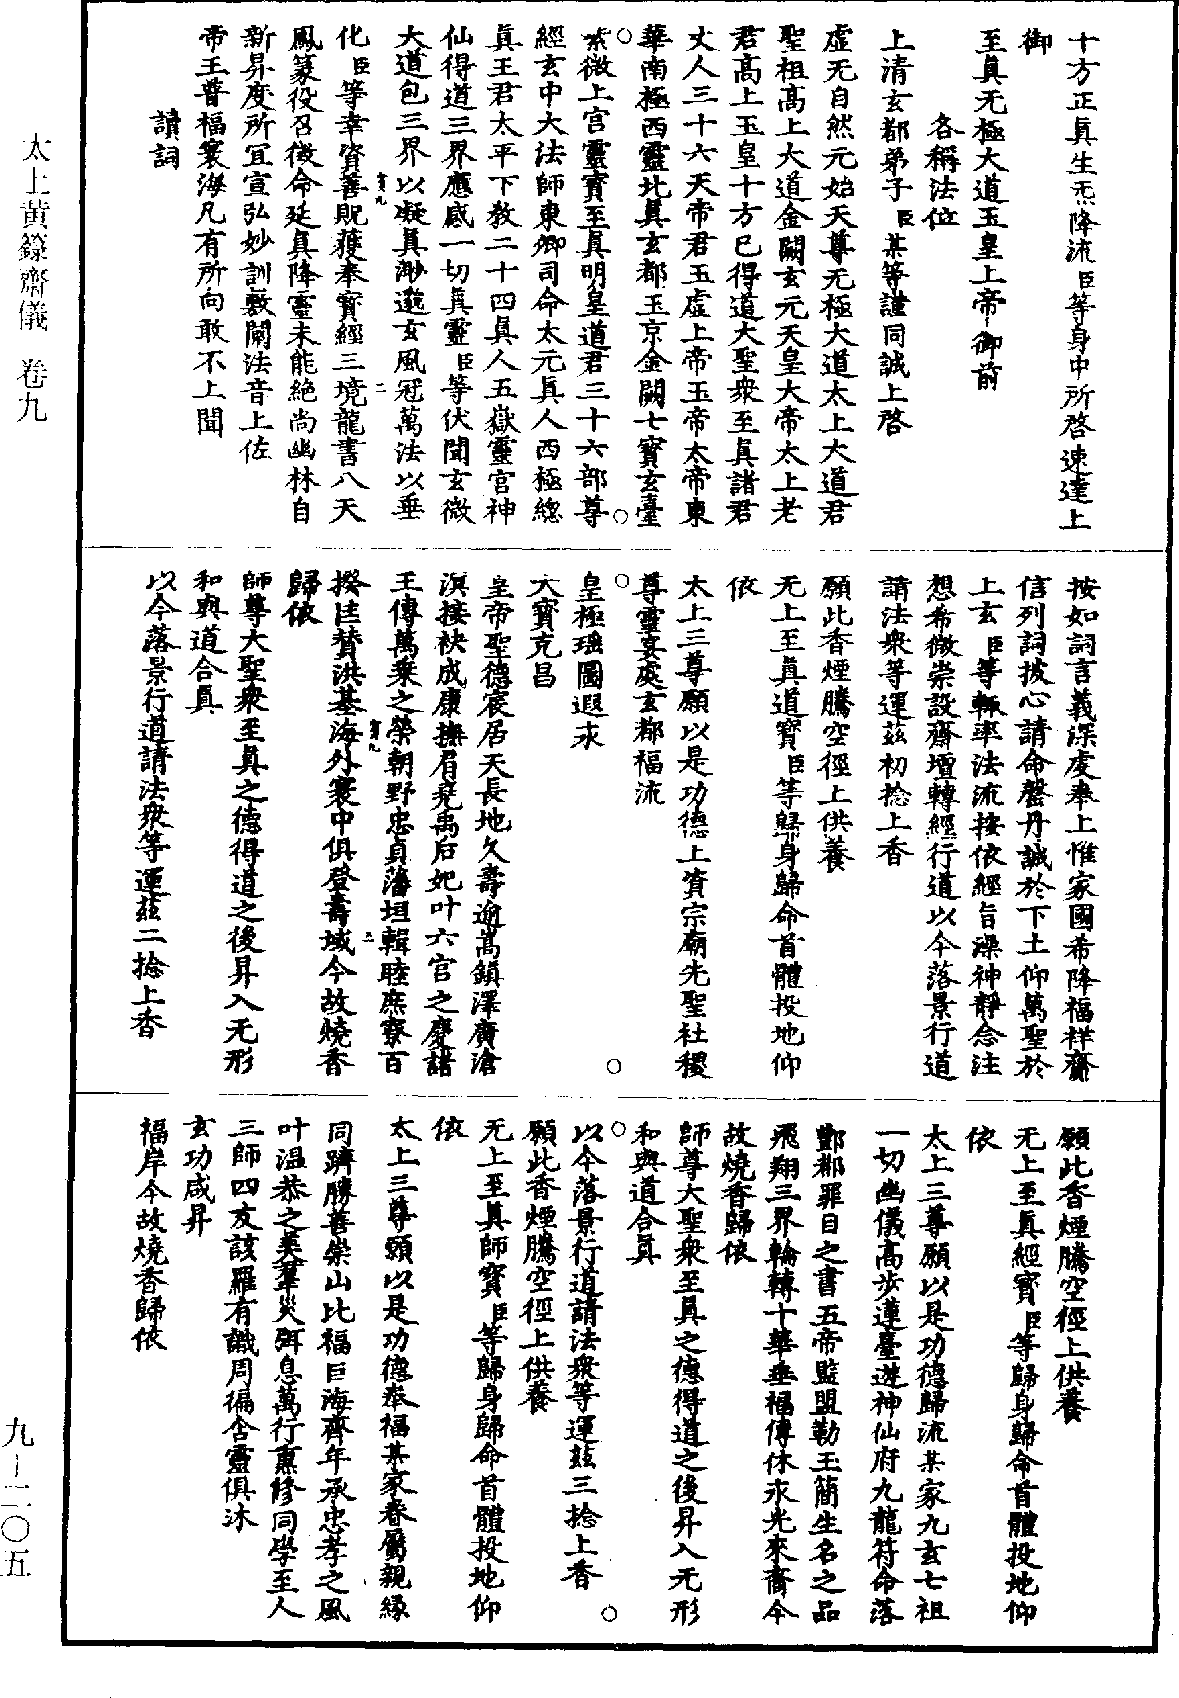 十方正真生炁降流臣等身中所啓速達上
御
至真无極大道玉皇上帝御前
各稱法位
上清玄都弟子臣某等謹同誠上啓
虛无自然元始天尊无極大道太上大道君
聖祖高上大道金闕玄元天皇大帝太上老
君高上玉皇十方已得道大聖衆至真諸君
丈人三十六天帝君玉虛上帝玉帝太帝東
華南極西靈北真玄都玉京金闕七寶玄臺
紫微上宮靈寶至真明皇道君三十六部尊
經玄中大法師東卿司命太元真人西極總
真王君太平下教二十四真人五嶽靈官神
仙得道三界應感一切真靈臣等伏聞玄微
大道包三界以凝真渺邈玄風冠萬法以垂
化臣等幸資善貺獲奉寶經三境龍書八天
鳳篆役召徵命延真降靈未能絶尚幽林自
新昇度所宜宣弘妙訓敷闡法音上佐
帝王普福寰海凡有所向敢不上聞
讀詞
按如詞言義深虔奉上惟家國希降福祥齎
信列詞披心請命罄丹誠於下土仰萬聖於
上玄臣等輒率法流按依經旨澡神靜念注
想希微崇設齋壇轉經行道以今落景行道
請法衆等運茲初捻上香
願此香煙騰空徑上供養
无上至真道寶臣等歸身歸命首體投地仰
依
太上三尊願以是功德上資宗廟先聖社稷
尊靈宴處玄都福流
皇極瑶圖遐永
大寶克昌
皇帝聖德宸居天長地久壽逾嵩鎮澤廣滄
溟接袂成康撫肩堯禹后妃叶六宮之慶諸
王傳萬乘之榮朝野忠貞藩垣輯睦庶寮百
揆匡賛洪基海外寰中俱登壽域今故燒香
歸依
師尊大聖衆至真之德得道之後昇入无形
和與道合真
以今落景行道請法衆等運茲二捻上香
願此香煙騰空徑上供養
无上至真經寶臣等歸身歸命首體投地仰
依
太上三尊願以是功德歸流某家九玄七祖
一切幽儀高步蓮臺遊神仙府九龍符命落
酆都罪目之書五帝監盟勒玉簡生名之品
飛翔三界輪轉十華垂福傳休永光來裔今
故燒香歸依
師尊大聖衆至真之德得道之後昇入无形
和與道合真
以今落景行道請法衆等運茲三捻上香
願此香煙騰空徑上供養
无上至真師寶臣等歸身歸命首體投地仰
依
太上三尊願以是功德奉福某家眷屬親緣
同躋勝善崇山比福巨海齊年承忠孝之風
叶溫恭之美羣災弭息萬行熏修同學至人
三師四友該羅有識周徧含靈俱沐
玄功咸昇
福岸今故燒香歸依
太上黄籙齋儀 卷九
九-二〇五